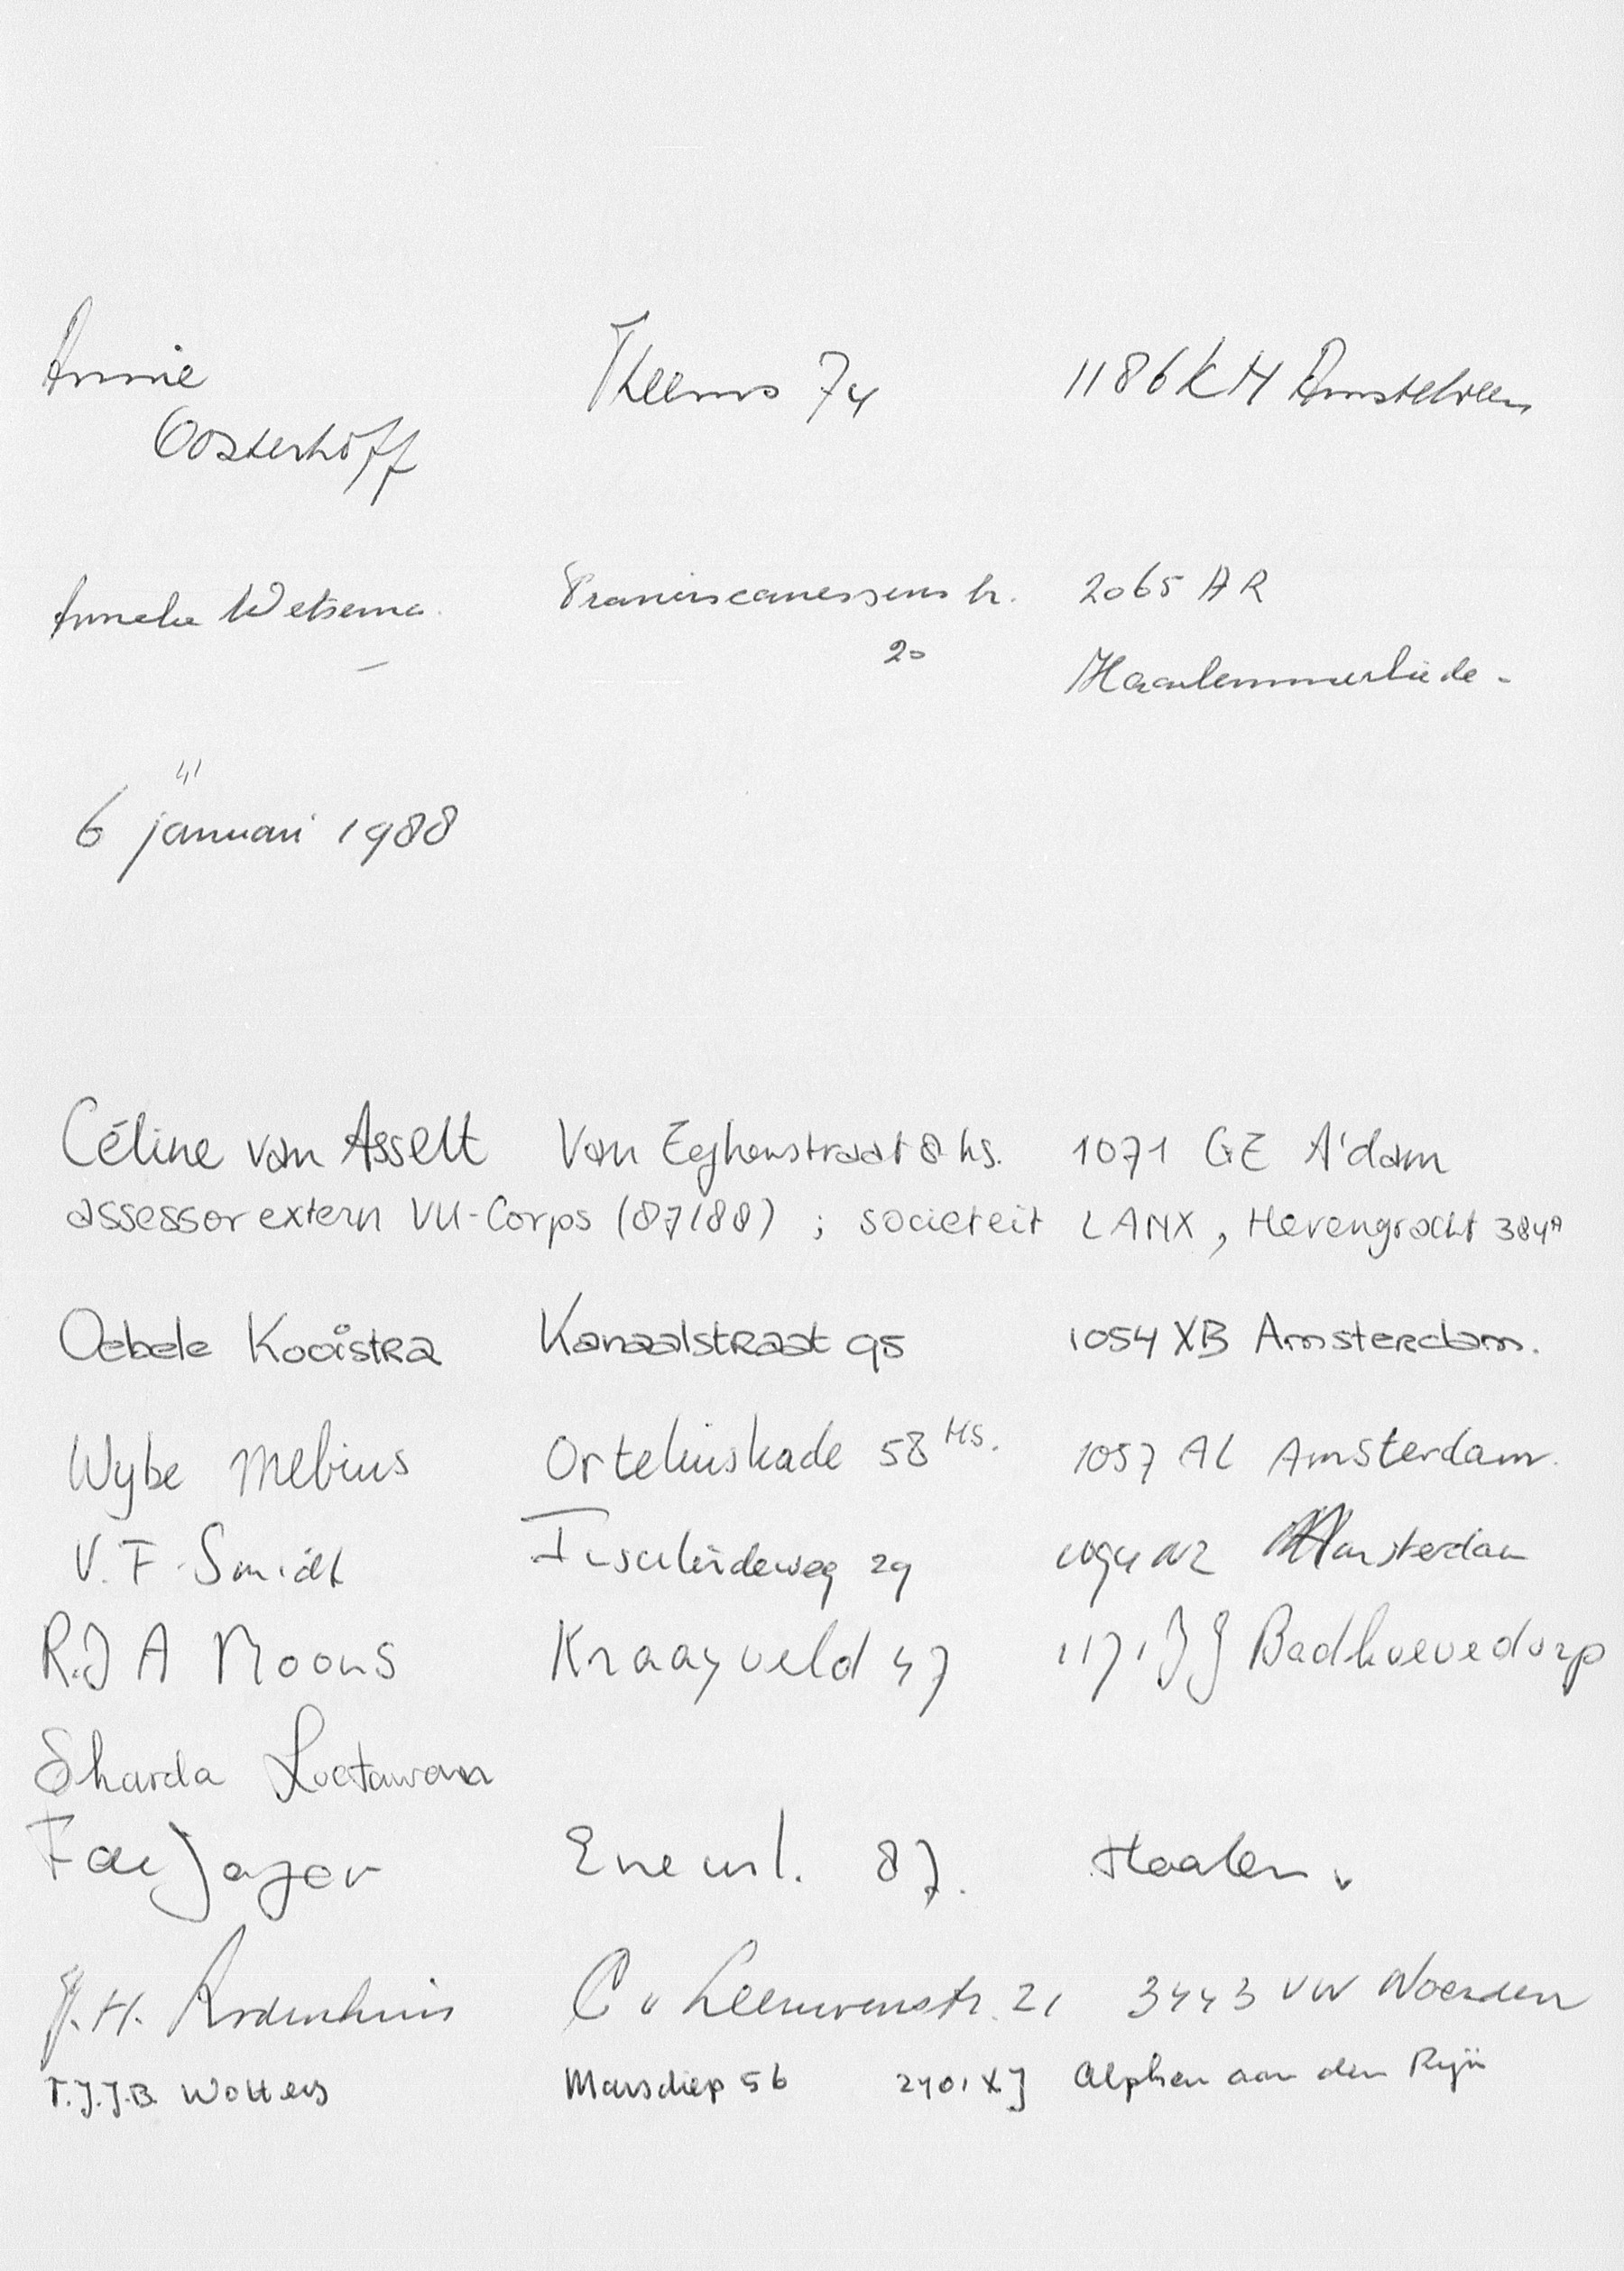 Annie Oosterhoff Theems 74 1186 KM Amstelveen
Anneke Wetsema. Franciscanessenstr. 20 2065 AR Haarlemmerliede -
6 januari 1988
Céline van Asselt Van Eeghenstraat 8 hs. 1071 GE A'dam
assessor extern VU-Corps (87/88) ; societeit LANX, Herengracht 384A
Oebele Kooistra Kanaalstraat 95 1054 XB Amsterdam.
Wybe Mebius Orteliuskade 58 HS. 1057 AL Amsterdam.
V. F. Smidt 29 Amsterdam
R.J A Moons Kraayveld 47 1171 JG Badhoevedorp
Sharda
Jager 87.
J.H. Rodenhuis C v Leeuwenstr. 21 3443 VW Woerden
T.J.J.B. Wolters Marsdiep 56 2401 XJ Alphen aan den Rijn